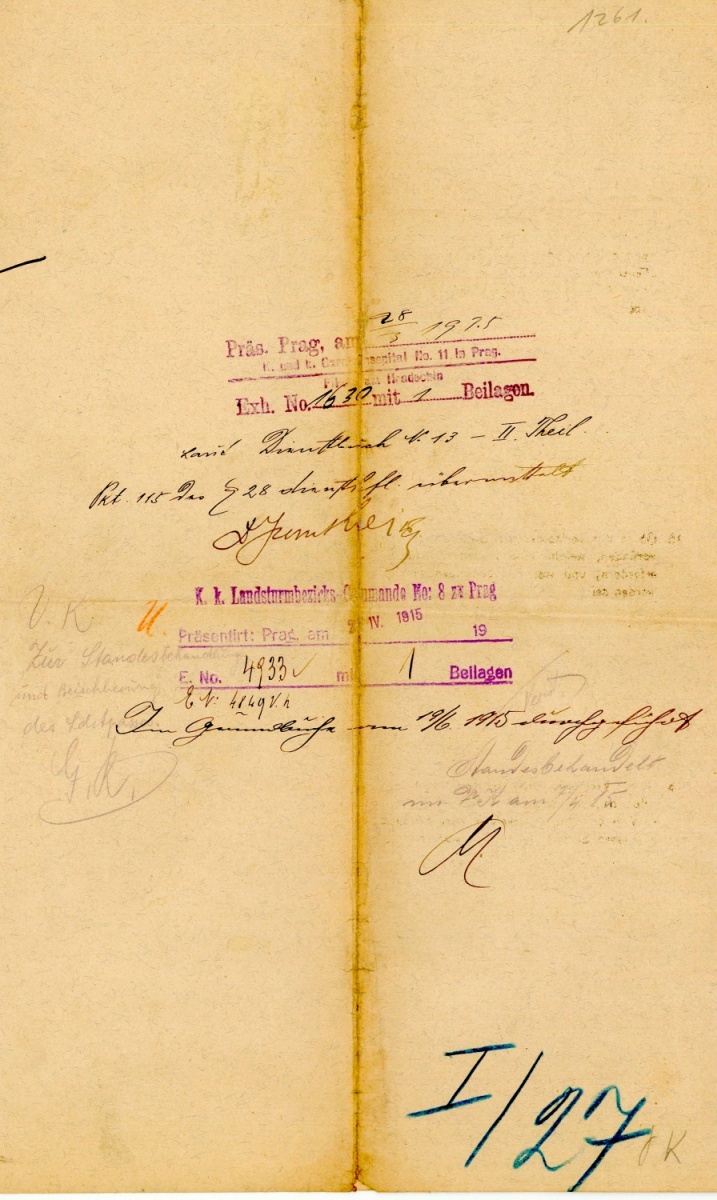 1261.
28/3 1915
Präs. Prag, am
K. und k. Garnisonsspital No. 11 in Prag.
Hradschin
Exh. No. 1630 mit 1 Beilagen.
laut Dienstbuch N. 13 – II. Theil.
Pkt. 115 des § 28 übermittelt
K. k. Landsturmbezirks-Commando No: 8 zu Prag
V. K. U.
Präsentirt: Prag, am 2. IV. 1915 19
Zur Standesbehandlung
E. No. 4933 mit 1 Beilagen
und
E N: 4849 v. h
des
Im Grundbuche am 19/6 1915 durchgeführt
G. K.
Standesbehandelt
im am 7/4 15
M.
I/27
K